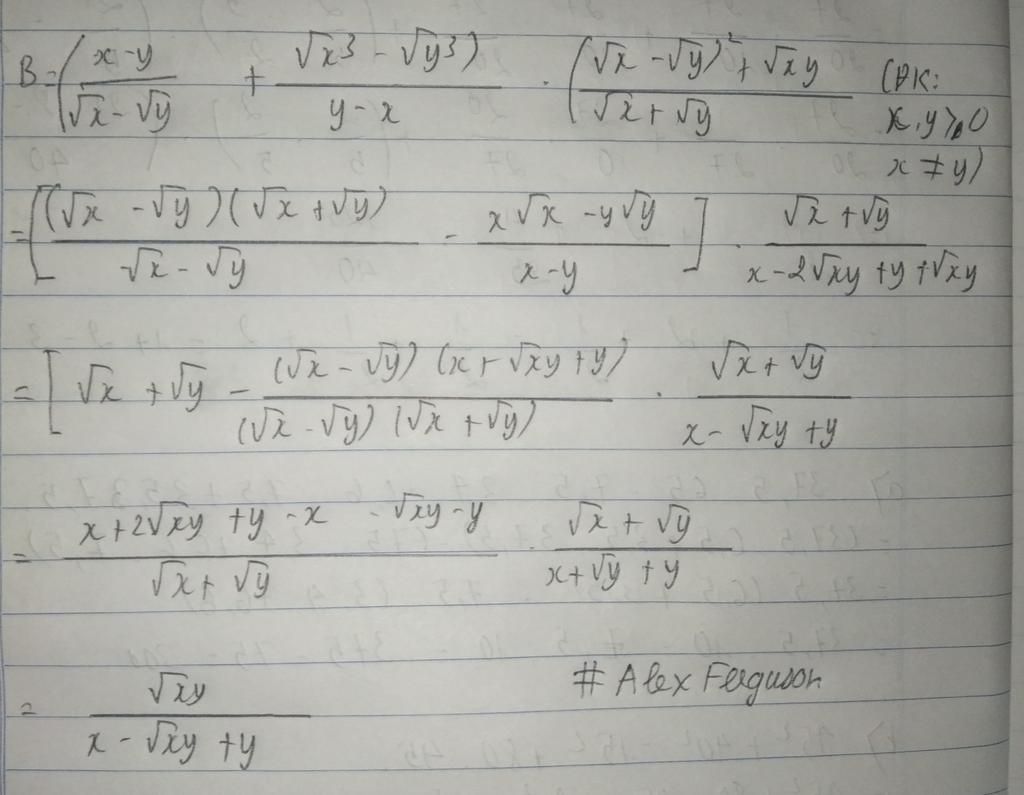 B = ( (x - y)/(√x - √y) + (√x³ - √y³)/(y - x) ) · ( ((√x - √y)² + √xy)/(√x + √y) (ĐK:
x, y ≥ 0
x ≠ y)
= [ ((√x - √y)(√x + √y))/(√x - √y) - (x√x - y√y)/(x - y) ] · (√x + √y)/(x - 2√xy + y + √xy)
= [ √x + √y - ((√x - √y)(x + √xy + y))/((√x - √y)(√x + √y)) · (√x + √y)/(x - √xy + y)
= (x + 2√xy + y - x - √xy - y)/(√x + √y) · (√x + √y)/(x + √y + y)
= √xy/(x - √xy + y)
# Alex Ferguson